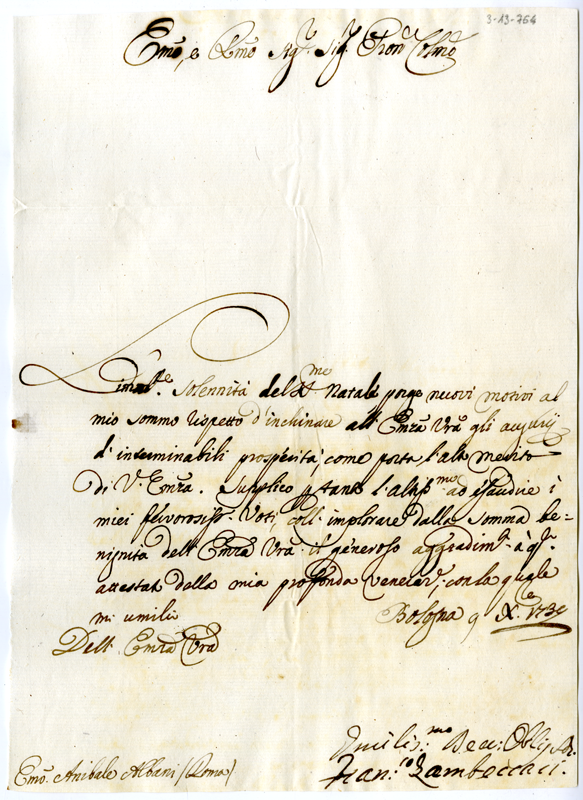 3-13-764
Emo, e Rmo Sigr. Sigr. Pron Colmo
L'immte. Solennità del Smo Natale porge nuovi motivi al
mio sommo rispetto d'inchinare all'Emza Vra gli augurij
d'interminabili prosperità, come porta l'alto merito
di V. Emza. Supplico p tanto l'altissmo ad esaudire i
miei fervorosissi. Voti, coll'implorare dalla somma be-
nignità dell'Emza Vra il generoso aggradimto. à qti.
attestati dalla mia profonda veneraz, con la quale
mi umilio
Bologna 9 Xbre
Dell'Emza Vra
Umiliss.mo Dev: Obligr.
Fran.co Zambeccari.
Emo. Anibale Albani (Roma)